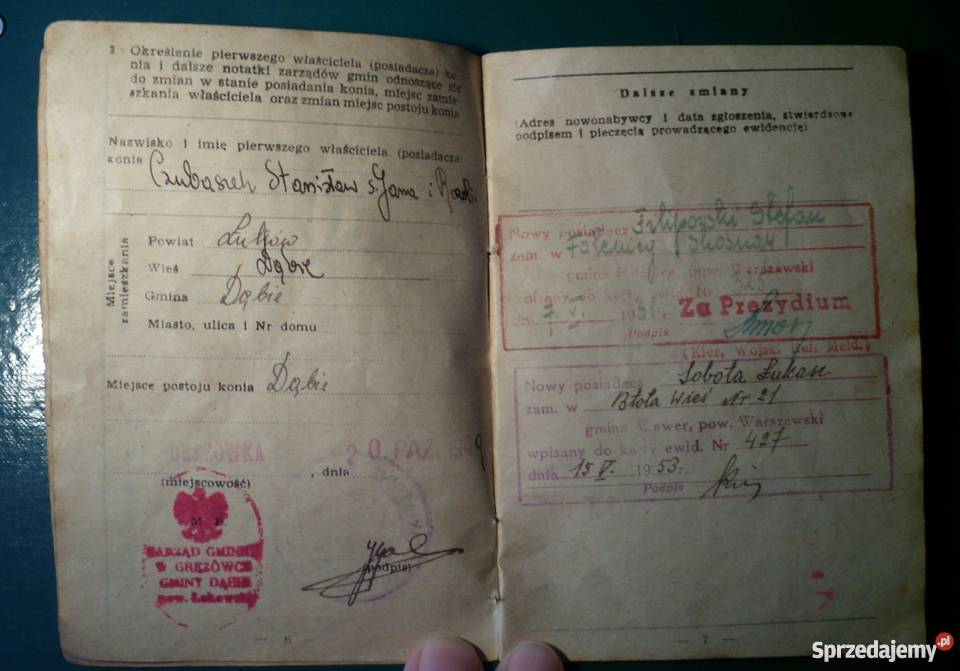 2 Określenie pierwszego właściciela (posiadacza) ko-
nia i dalsze notatki zarządów gmin odnoszące się
do zmian w stanie posiadania konia, miejsc zamie-
szkania właściciela oraz zmian miejsc postoju konia
Nazwisko i imię pierwszego właściciela (posiadacza
konia Czubaszek Stanisław s. Jana i
Miejsce
zamieszkania
Powiat Łuków
Wieś Dąbie
Gmina Dąbie
Miasto, ulica i Nr domu
Miejsce postoju konia Dąbie
GRĘZÓWKA 20. PAZ. 1949
(miejscowość) , dnia
M P
ZARZĄD GMINNY
W GRĘZÓWCE
GMINY DĄBIE
pow. Łukowski
(podpis)
— 6 —
Dalsze zmiany
(Adres nowonabywcy i data zgłoszenia, stwierdzone
podpisem i pieczęcią prowadzącego ewidencję)
Nowy posiadacz Filipowski Stefan
zam. w Falenicy
gmina Falenica, pow. Warszawski
wpisany do karty ewid. Nr
dn. 7. V. 1951 r. Za Prezydium
Podpis
(Kier. Wojsk. Ref. Meld.)
Nowy posiadacz Sobota Łukasz
zam. w Błota Wieś Nr 21
gmina Wawer, pow. Warszawski
wpisany do karty ewid. Nr 427
dnia 15 V. 1953 r.
Podpis
— 7 —
Sprzedajemy.pl